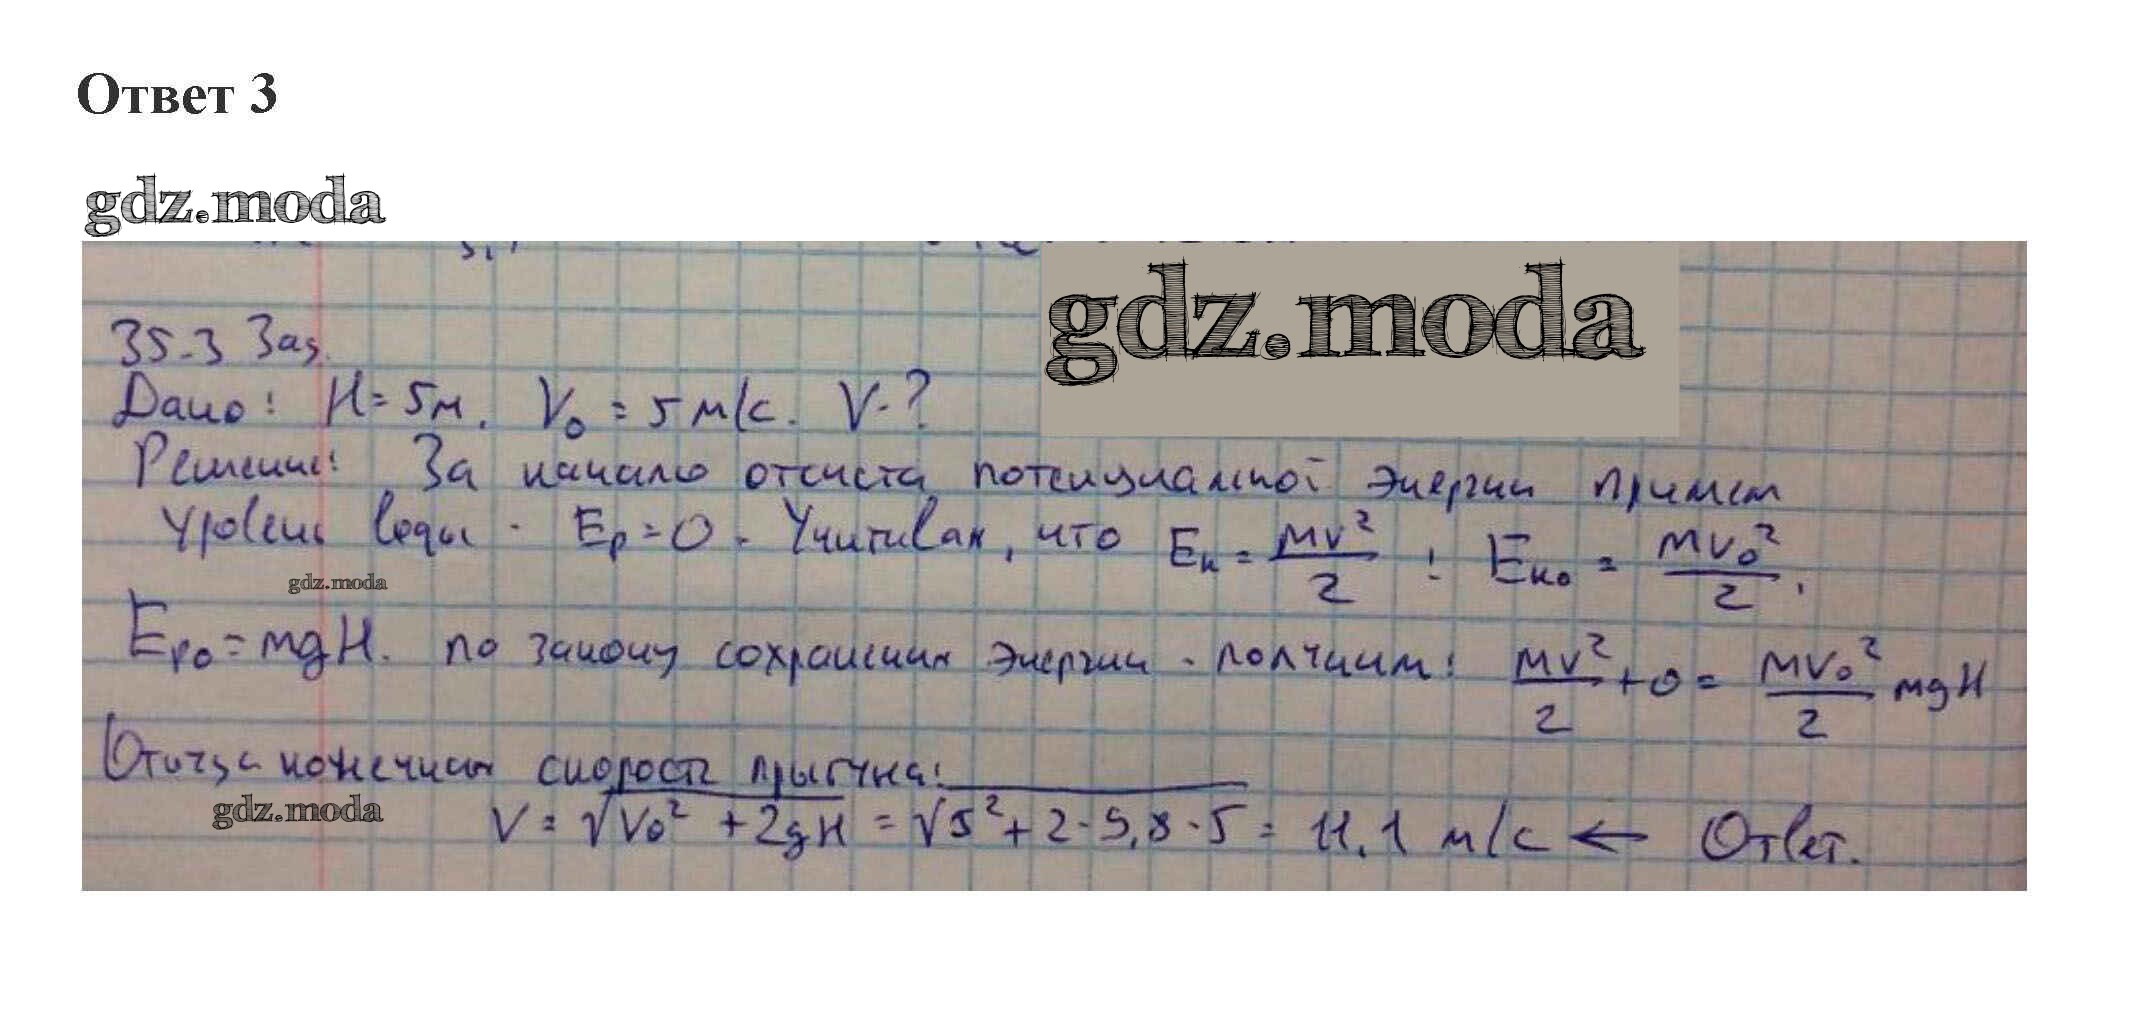 Ответ 3
gdz.moda
gdz.moda
35-3 Зад.
Дано: H = 5м. V₀ = 5 м/с. V-?
Решение: За начало отсчета потенциальной энергии примем
уровень воды. Eₚ=0. Учитывая, что Eₖ = mv²/2 ; Eₖ₀ = mv₀²/2.
gdz.moda
Eₚ₀ = mgH. по закону сохранения энергии получим: mv²/2 + 0 = mv₀²/2 mgH
Отсуда конечная скорость прыгуна:
gdz.moda
V = √V₀² + 2gH = √5² + 2·9,8·5 = 11.1 м/с ← Ответ.